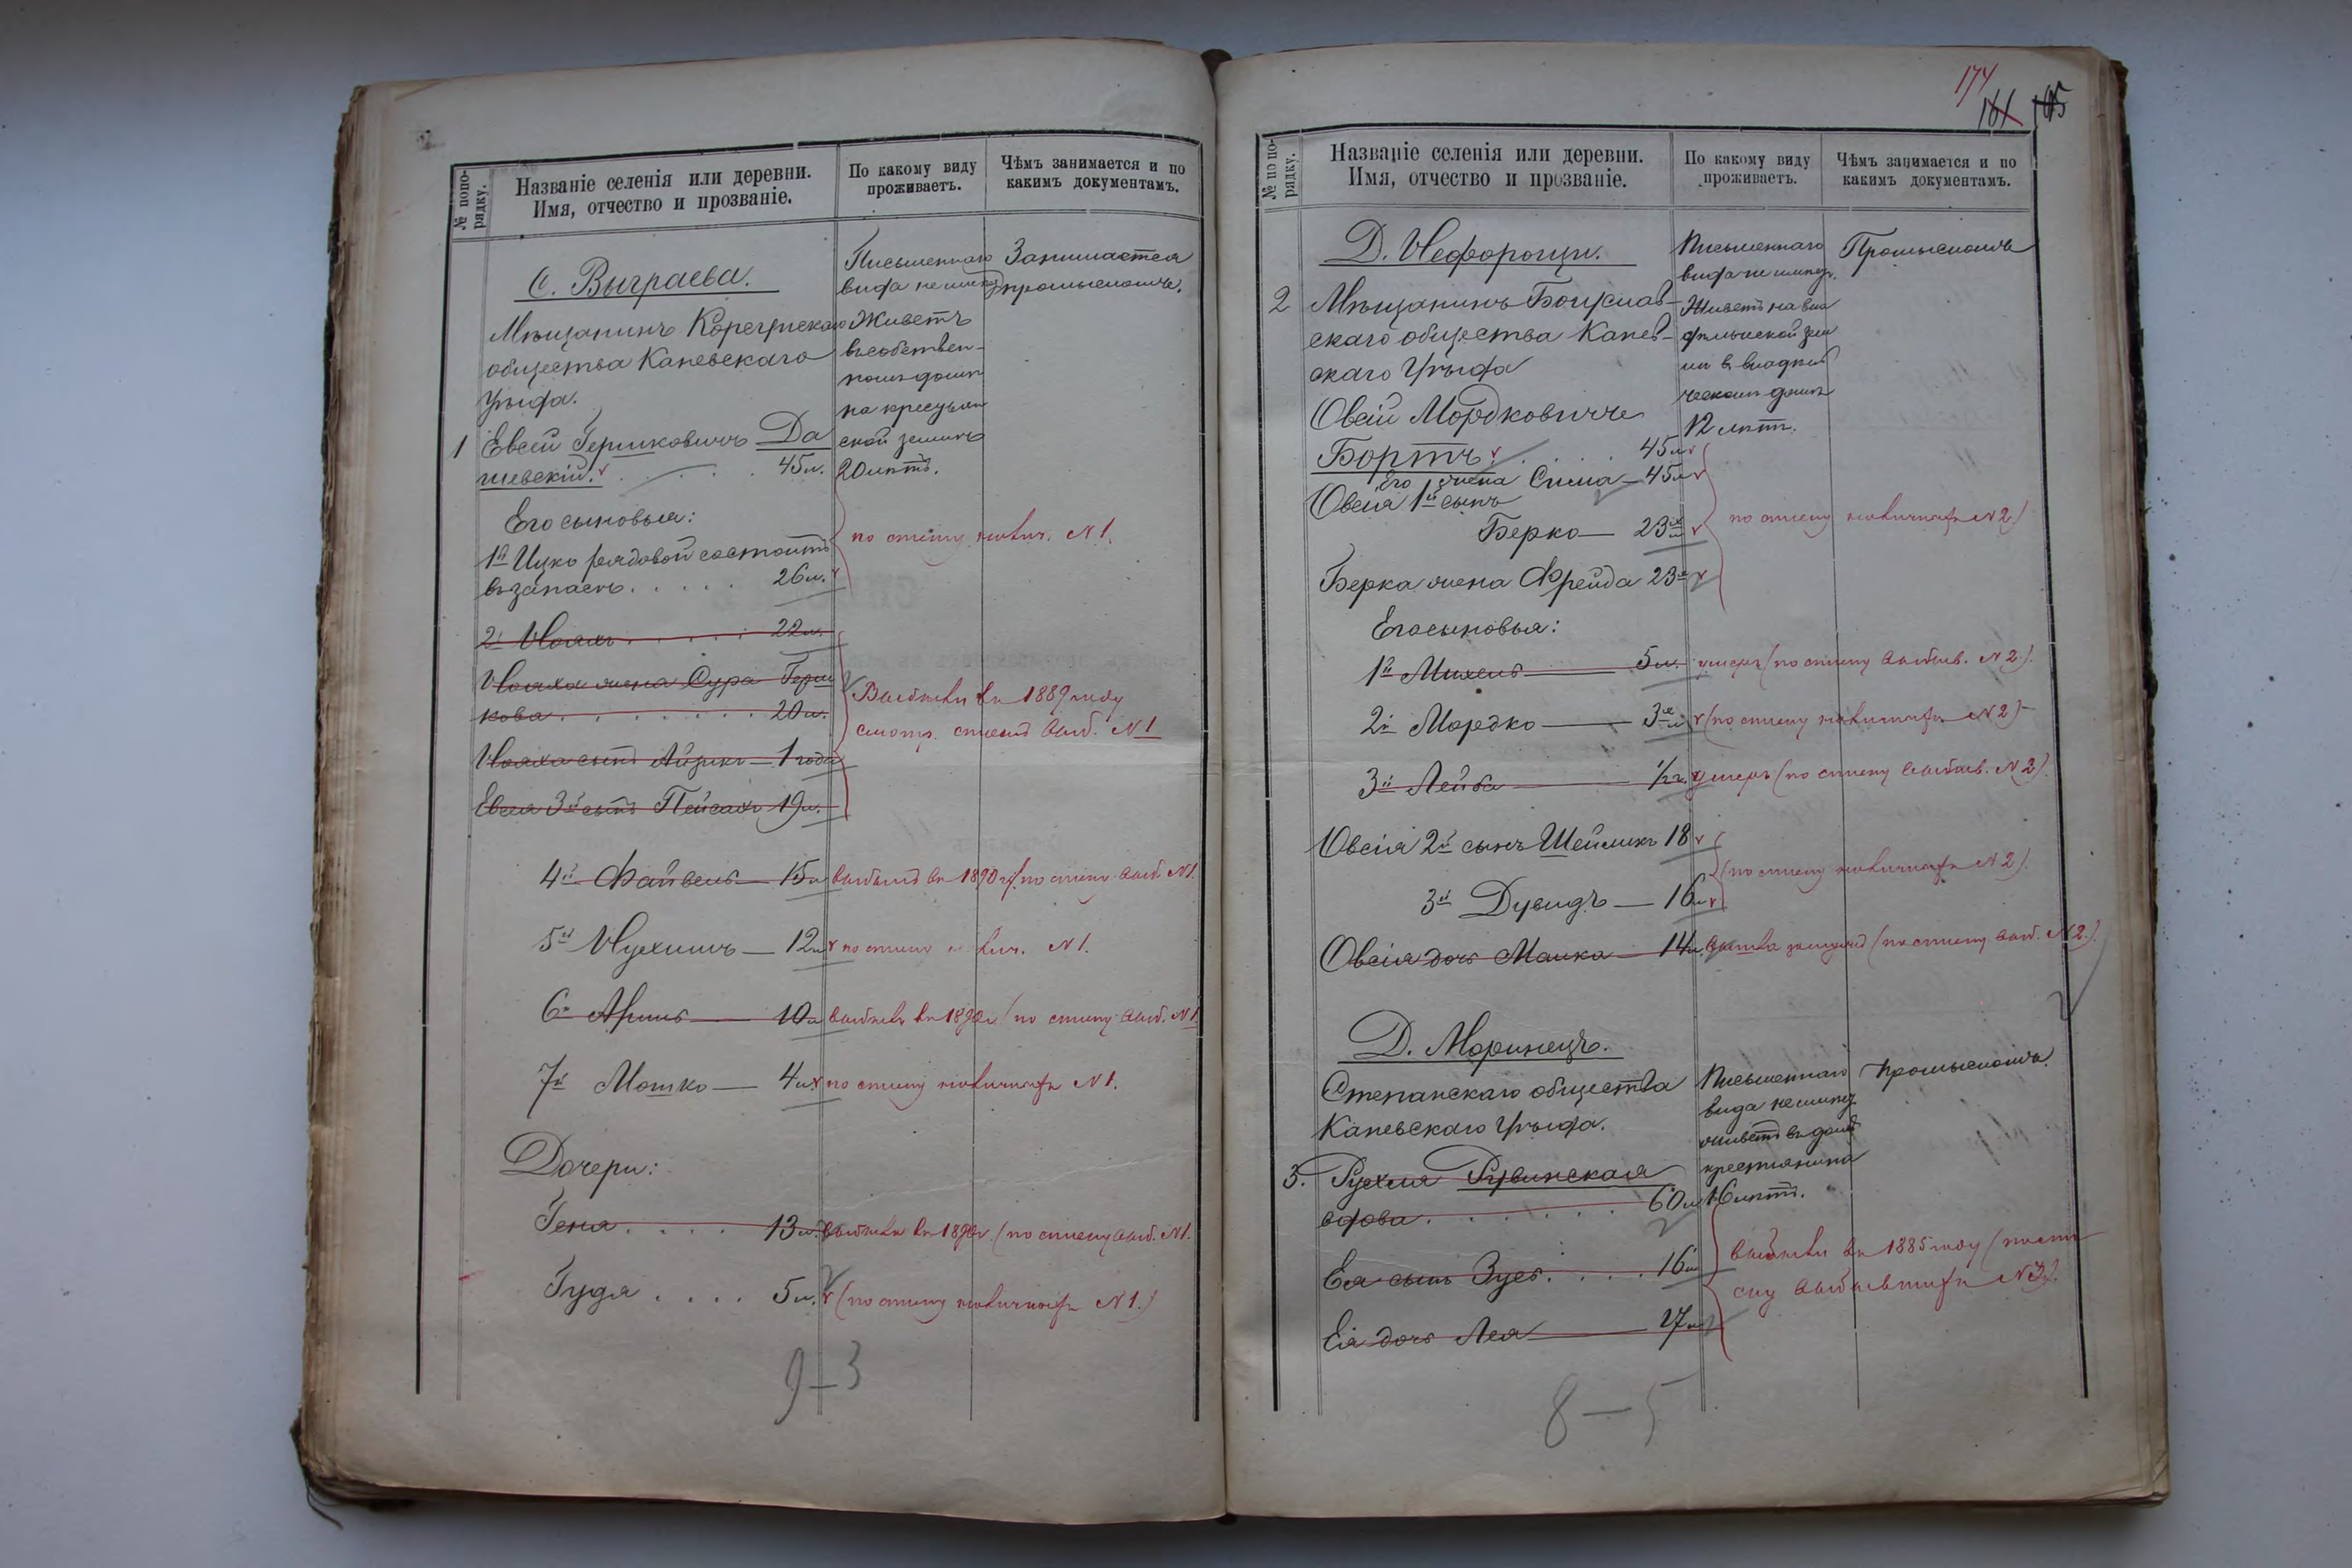 № попо-
рядку.
Названіе селенія или деревни.
Имя, отчество и прозваніе.
По какому виду
проживаетъ.
Чѣмъ занимается и по
какимъ документамъ.
С. Выграева.
Мѣщанинъ Корсунскаго
общества Каневскаго
уѣзда.
1 Евсей Гершковичъ Да
шевскій. 45 л.
Письменнаго
вида не имѣетъ
Живетъ
въ собствен-
номъ домѣ
на крестьян
ской землѣ
20 лѣтъ.
Занимается
промысломъ.
Его сыновья:
1й Ицко рядовой состоитъ
въ запасѣ. . . . . 26 л.
по списку наличн. N 1.
2й . . . . . 22 л.
жена Сура Герш
кова . . . . . . . 20 л.
сынъ Айзикъ — 1 года
Евсея 3й сынъ Пейсахъ 19 л.
Выбыли въ 1889 году
смотр. списокъ выб. N 1
4й Файвель — 15 л выбылъ въ 1890 г. по списку выб. N 1.
5й Нухимъ — 12 л по списку налич. N 1.
6й Аршь — 10 л выбылъ въ 1890 г. (по списку выб. N 1
7й Мошко — 4 л по списку наличныхъ N 1.
Дочери:
Геня . . . . 13 л. выбыла въ 1890 г. (по списку выб. N 1.
Гудя . . . . 5 л. (по списку наличныхъ N 1.)
9—3
174
161 165
№ по по-
рядку.
Названіе селенія или деревни.
Имя, отчество и прозваніе.
По какому виду
проживаетъ.
Чѣмъ занимается и по
какимъ документамъ.
Д. Нефорощи.
2 Мѣщанинъ Богуслав-
скаго общества Канев-
скаго уѣзда
Овсій Мордковичъ
Бортъ. . . . 45 л
Его жена Сима — 45 л
Овсія 1й сынъ
Берко — 23 л
Берка жена Фрейда 23 л
Письменнаго
вида не имѣетъ.
Живетъ на вла
дѣльческой зем
ли въ владѣль
ческомъ домѣ
12 лѣтъ.
Промысломъ
по списку наличныхъ N 2.)
Его сыновья:
1й Михель — 5 л. умеръ (по списку выбыв. N 2.).
2й Мордко — 3 л (по списку наличныхъ N 2)
3й Лейба — 1/2 г. умеръ (по списку выбыв. N 2).
Овсія 2й сынъ Шеймикъ 18
3й Дувидъ — 16 л
(по списку наличныхъ N 2).
Овсія дочь Малка — 14 л. вышла замужъ (по списку выб. N 2.).
Д. Моринецъ.
Степанскаго общества
Каневскаго уѣзда.
3. Рухля Рувинская
вдова . . . . . . . 60 л
Ея сынъ Зусь. . . . . 16 л
Ея дочь Лея — 17 л
Письменнаго
вида не имѣетъ
живетъ въ домѣ
крестьянина
16 лѣтъ.
Промысломъ.
выбыли въ 1885 году (по спи
ску выбывшихъ N 3).
8—5